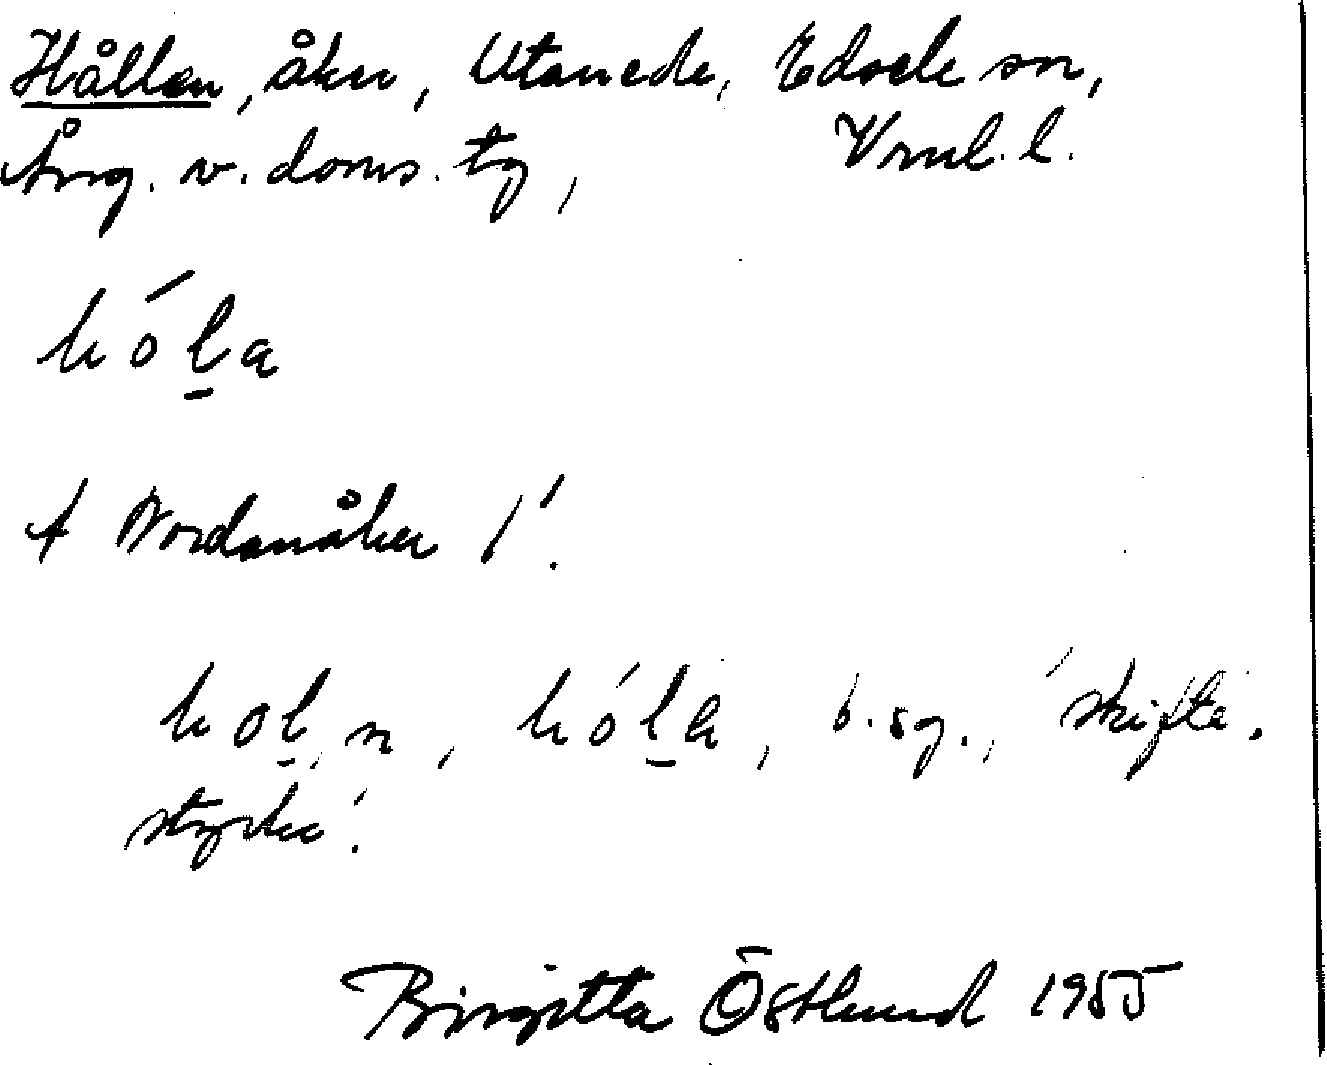 Hållan, åker, Utanede, Edsele sn,
Ång. v. doms. tg, Vml. l.
hóḻa
A Nordanåker 1'.
hoḻ, n, hóḻa, b. sg., 'skifte,
stycke'.
Birgitta Östlund 1955